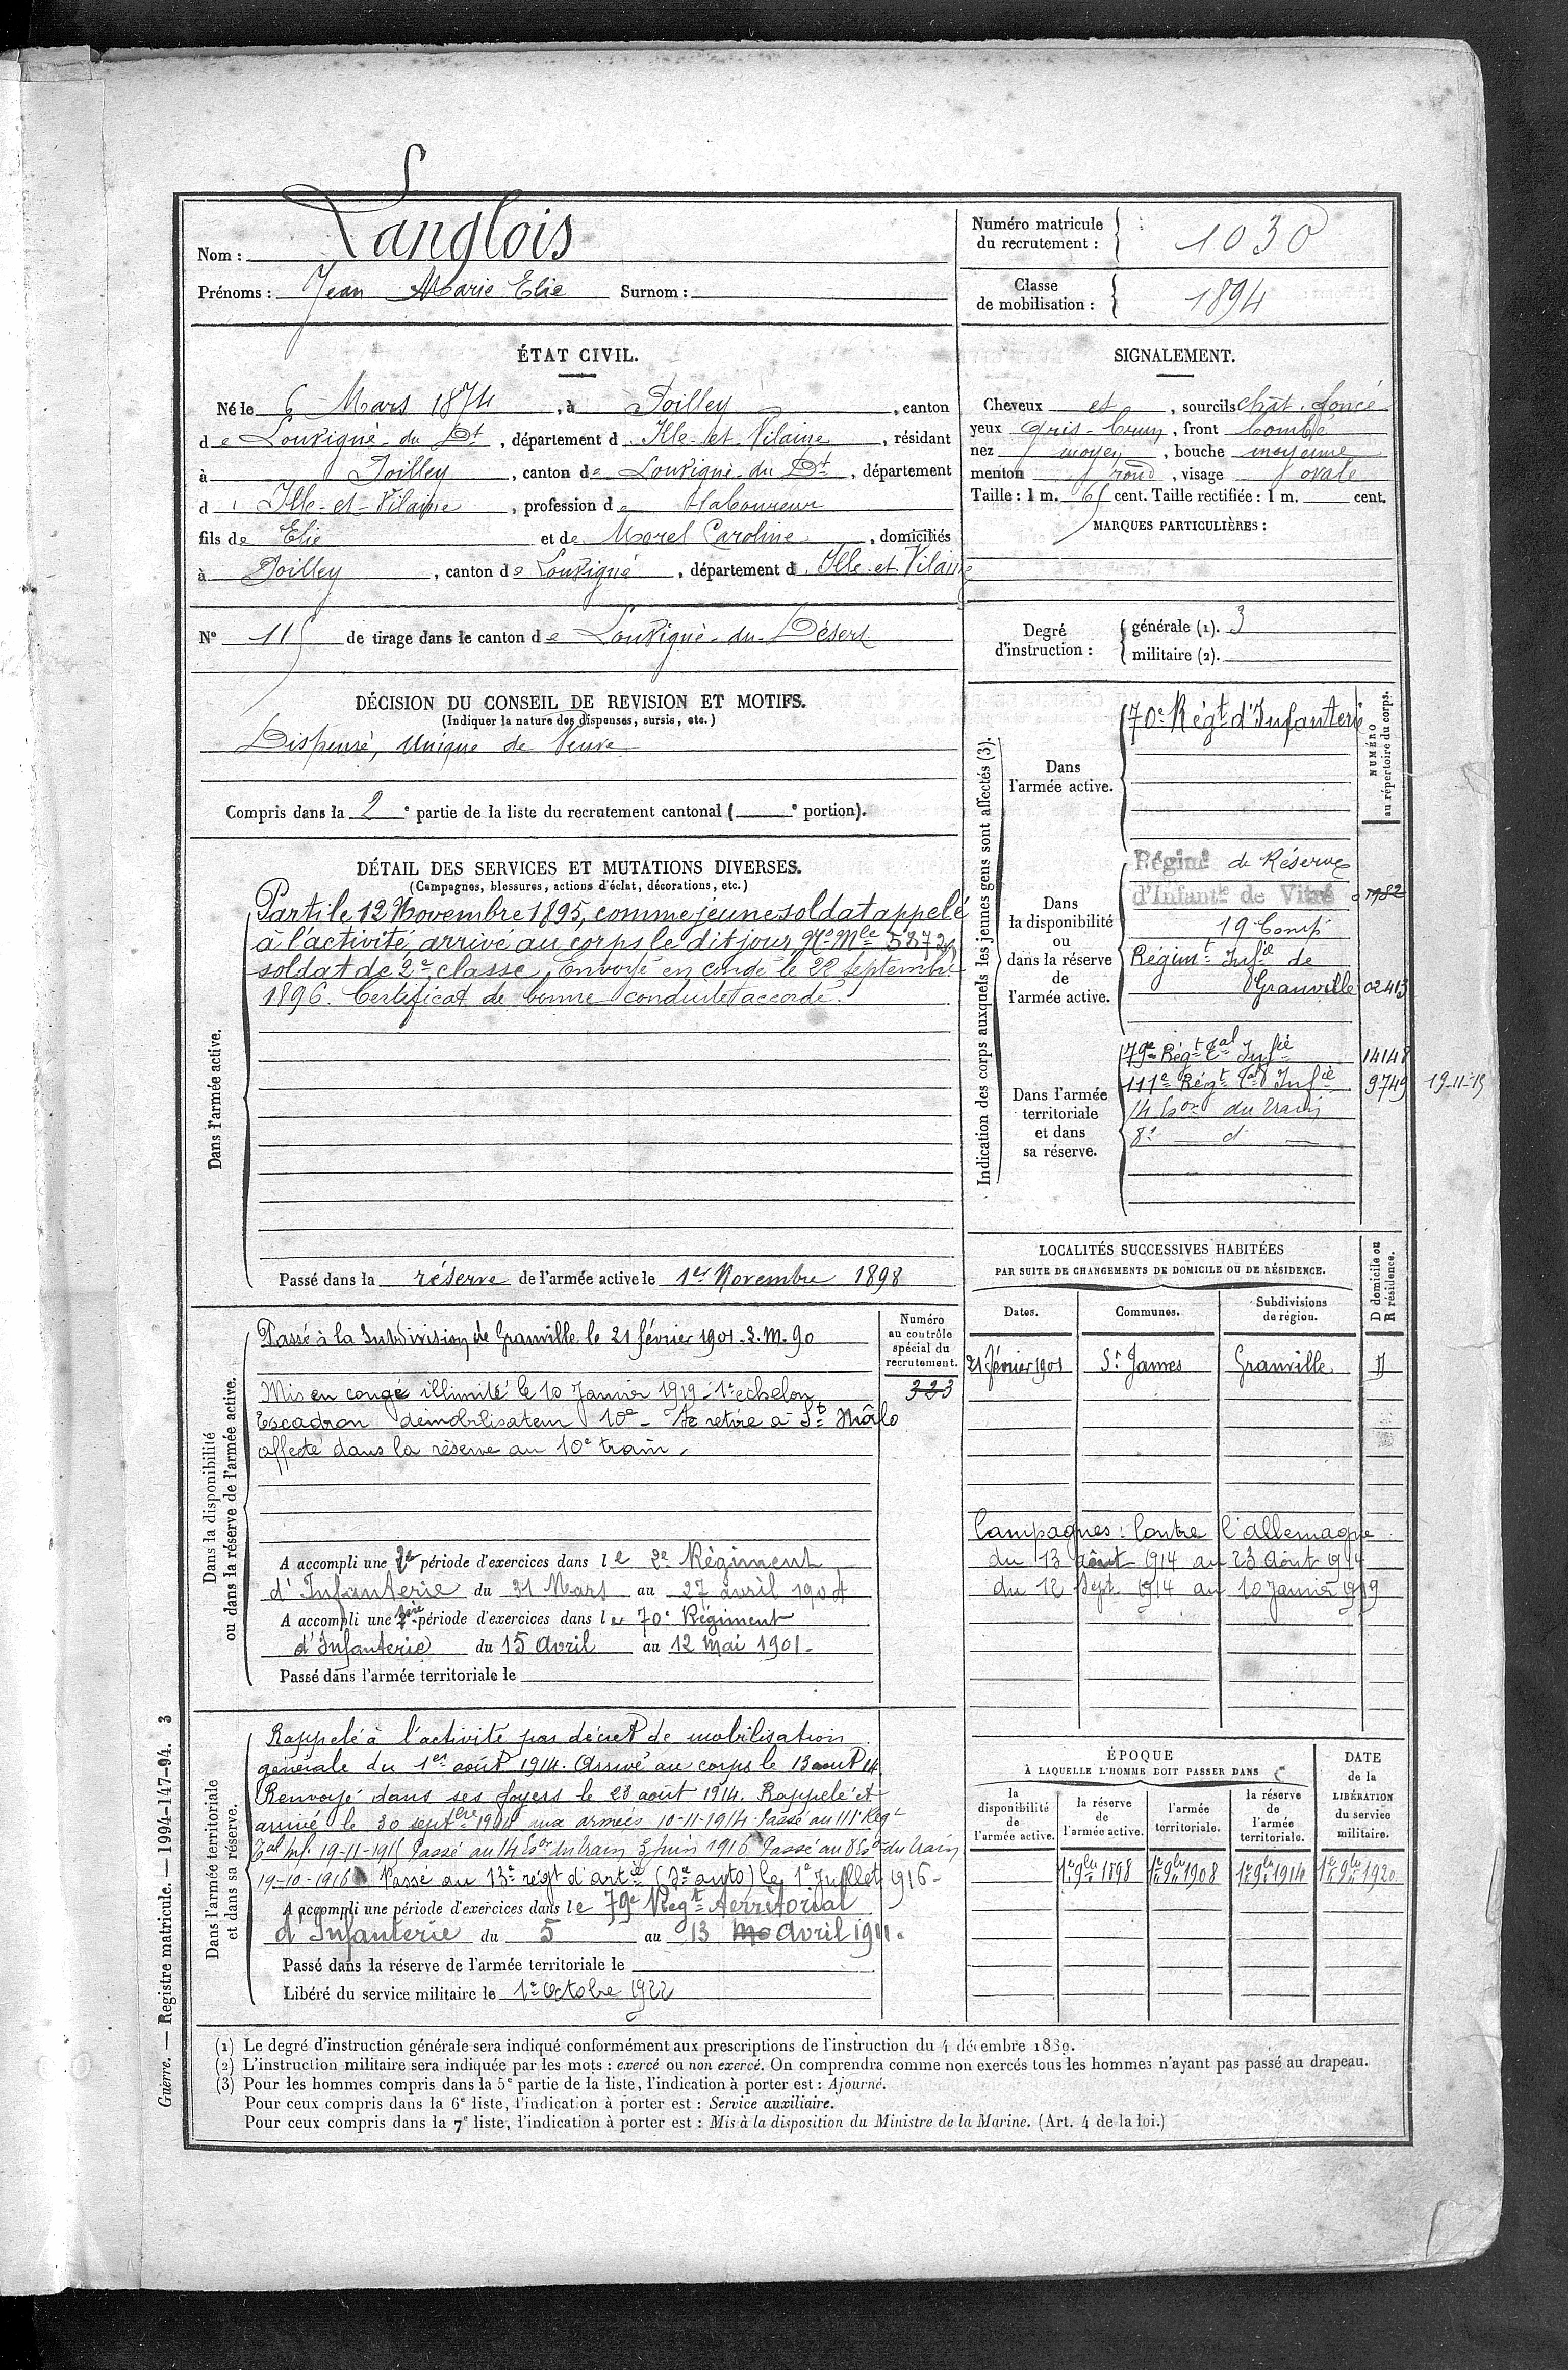 Nom : Langlois
Prénoms : Jean Marie Elie Surnom :
Numéro matricule du recrutement : 1030
Classe de mobilisation : 1894
ÉTAT CIVIL.
Né le 6 Mars 1874, à Poilley, canton
de Louvigné-du-Dt, département d'Ille-et-Vilaine, résidant
à Poilley, canton de Louvigné-du-Dt, département
d'Ille-et-Vilaine, profession de laboureur
fils de Elie et de Morel Caroline, domiciliés
à Poilley, canton de Louvigné, département d'Ille-et-Vilaine
N° 115 de tirage dans le canton de Louvigné-du-Désert
SIGNALEMENT.
Cheveux et, sourcils chât. foncé
yeux gris-brun, front bombé
nez moyen, bouche moyenne
menton rond, visage ovale
Taille : 1 m. 65 cent. Taille rectifiée : 1 m. cent.
MARQUES PARTICULIÈRES :
Degré d'instruction : générale (1). 3
militaire (2).
DÉCISION DU CONSEIL DE REVISION ET MOTIFS.
(Indiquer la nature des dispenses, sursis, etc.)
Dispensé, Unique de Veuve
Compris dans la 2e partie de la liste du recrutement cantonal ( e portion).
DÉTAIL DES SERVICES ET MUTATIONS DIVERSES.
(Campagnes, blessures, actions d'éclat, décorations, etc.)
Dans l'armée active.
Parti le 12 Novembre 1895, comme jeune soldat appelé
à l'activité, arrivé au corps le dit jour, No Mle 5872,
soldat de 2e classe, Envoyé en congé le 22 septembre
1896. Certificat de bonne conduite accordé.
Passé dans la réserve de l'armée active le 1er Novembre 1898
Indication des corps auxquels les jeunes gens sont affectés (3).
NUMÉRO au répertoire du corps.
Dans l'armée active.
70e Régt d'Infanterie
Dans la disponibilité ou dans la réserve de l'armée active.
Régimt de Réserve
d'Infantie de Vitré 1982
19 Comp
Régimt Infie de
Granville 02413
Dans l'armée territoriale et dans sa réserve.
79e Régt Tal Infie 14148
111e Régt Tal Infie 9749 19-11-15
14 Eson du train
8e d
LOCALITÉS SUCCESSIVES HABITÉES
PAR SUITE DE CHANGEMENTS DE DOMICILE OU DE RÉSIDENCE.
Dates. Communes. Subdivisions de région. D domicile ou R résidence.
21 février 1901 St James Granville D
Campagnes : Contre l'allemagne
du 13 août 1914 au 23 Août 1914
du 12 Sept 1914 au 10 janvier 1919
Dans la disponibilité ou dans la réserve de l'armée active.
Numéro au contrôle spécial du recrutement.
323
Passé à la Subdivision de Granville le 21 février 1901. S.M. 90
Mis en congé illimité le 10 Janvier 1919 - 1e echelon
Escadron démobilisateur 10e - Se retire à St Mâlo
affecté dans la réserve au 10e train.
A accompli une 2e période d'exercices dans le 2e Régiment
d'Infanterie du 31 Mars au 27 avril 1904
A accompli une 1ère période d'exercices dans le 70e Régiment
d'Infanterie du 15 Avril au 12 Mai 1901.
Passé dans l'armée territoriale le
Dans l'armée territoriale et dans sa réserve.
Rappelé à l'activité par décret de mobilisation
générale du 1er août 1914. Arrivé au corps le 13 août 14.
Renvoyé dans ses foyers le 23 août 1914. Rappelé et
arrivé le 30 septbre 1914 aux armées 10-11-1914. Passé au 111e Régt
Tal Inf. 19-11-1915 Passé au 14 Eson du train 3 juin 1916 Passé au 8 Eson du train
19-10-1916 Passé au 13e régt d'artie (3e auto) le 1e Juillet 1916 -
A accompli une période d'exercices dans le 79e Régt territorial
d'Infanterie du 5 au 13 Avril 1911.
Passé dans la réserve de l'armée territoriale le
Libéré du service militaire le 1e Octobre 1922
ÉPOQUE À LAQUELLE L'HOMME DOIT PASSER DANS
la disponibilité de l'armée active. la réserve de l'armée active. l'armée territoriale. la réserve de l'armée territoriale.
DATE de la LIBÉRATION du service militaire.
1e 9bre 1898 1e 9bre 1908 1e 9bre 1914 1e 9bre 1920
(1) Le degré d'instruction générale sera indiqué conformément aux prescriptions de l'instruction du 4 décembre 1889.
(2) L'instruction militaire sera indiquée par les mots : exercé ou non exercé. On comprendra comme non exercés tous les hommes n'ayant pas passé au drapeau.
(3) Pour les hommes compris dans la 5e partie de la liste, l'indication à porter est : Ajourné.
Pour ceux compris dans la 6e liste, l'indication à porter est : Service auxiliaire.
Pour ceux compris dans la 7e liste, l'indication à porter est : Mis à la disposition du Ministre de la Marine. (Art. 4 de la loi.)
Guerre. — Registre matricule. — 1994-147-94. 3